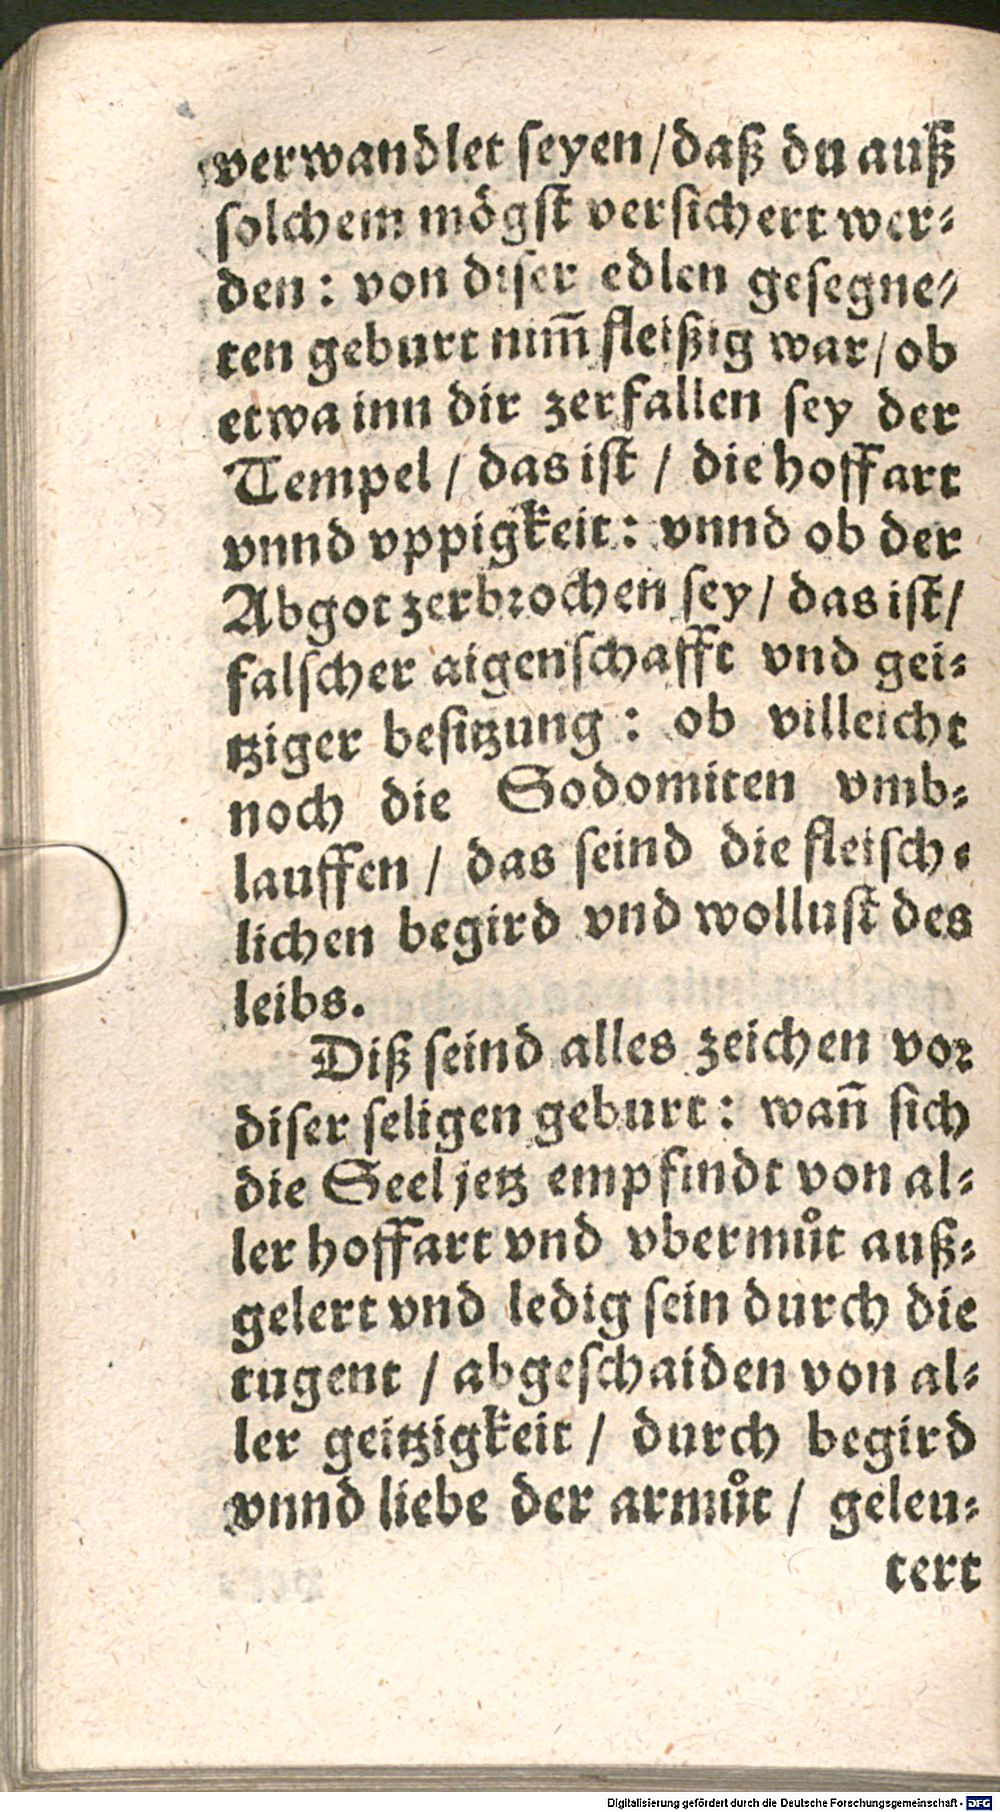 verwandlet seyen/daß du auß
solchem mögst versichert wer-
den: von diser edlen gesegne-
ten geburt nim̄ fleißig war/ob
etwa inn dir zerfallen sey der
Tempel / das ist / die hoffart
vnnd vppigkeit: vnnd ob der
Abgot zerbrochen sey/ das ist/
falscher aigenschafft vnd gei-
tziger besitzung: ob villeicht
noch die Sodomiten vmb-
lauffen / das seind die fleisch-
lichen begird vnd wollust des
leibs.
Diß seind alles zeichen vor
diser seligen geburt: wañ sich
die Seel jetz empfindt von al-
ler hoffart vnd vbermůt auß-
gelert vnd ledig sein durch die
tugent / abgeschaiden von al-
ler geitzigkeit / durch begird
vnnd liebe der armůt / geleu-
tert
Digitalisierung gefördert durch die Deutsche Forschungsgemeinschaft - DFG